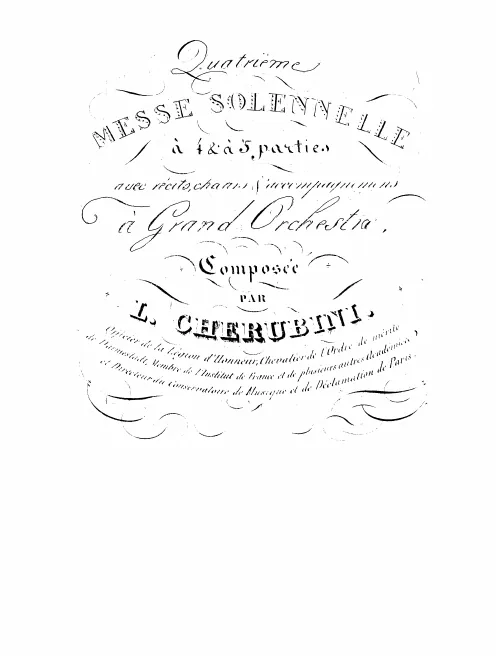 Quatrième
MESSE SOLENNELLE
à 4 & à 5, parties
avec récits, chœurs & accompagnemens
à Grand Orchestra.
Composée
PAR
L. CHERUBINI.
Officier de la Légion d'Honneur, Chevalier de l'Ordre de mérite
de Darmstadt, Membre de l'Institut de France et de plusieurs autres Académies,
et Directeur du Conservatoire de Musique et de Déclamation de Paris.